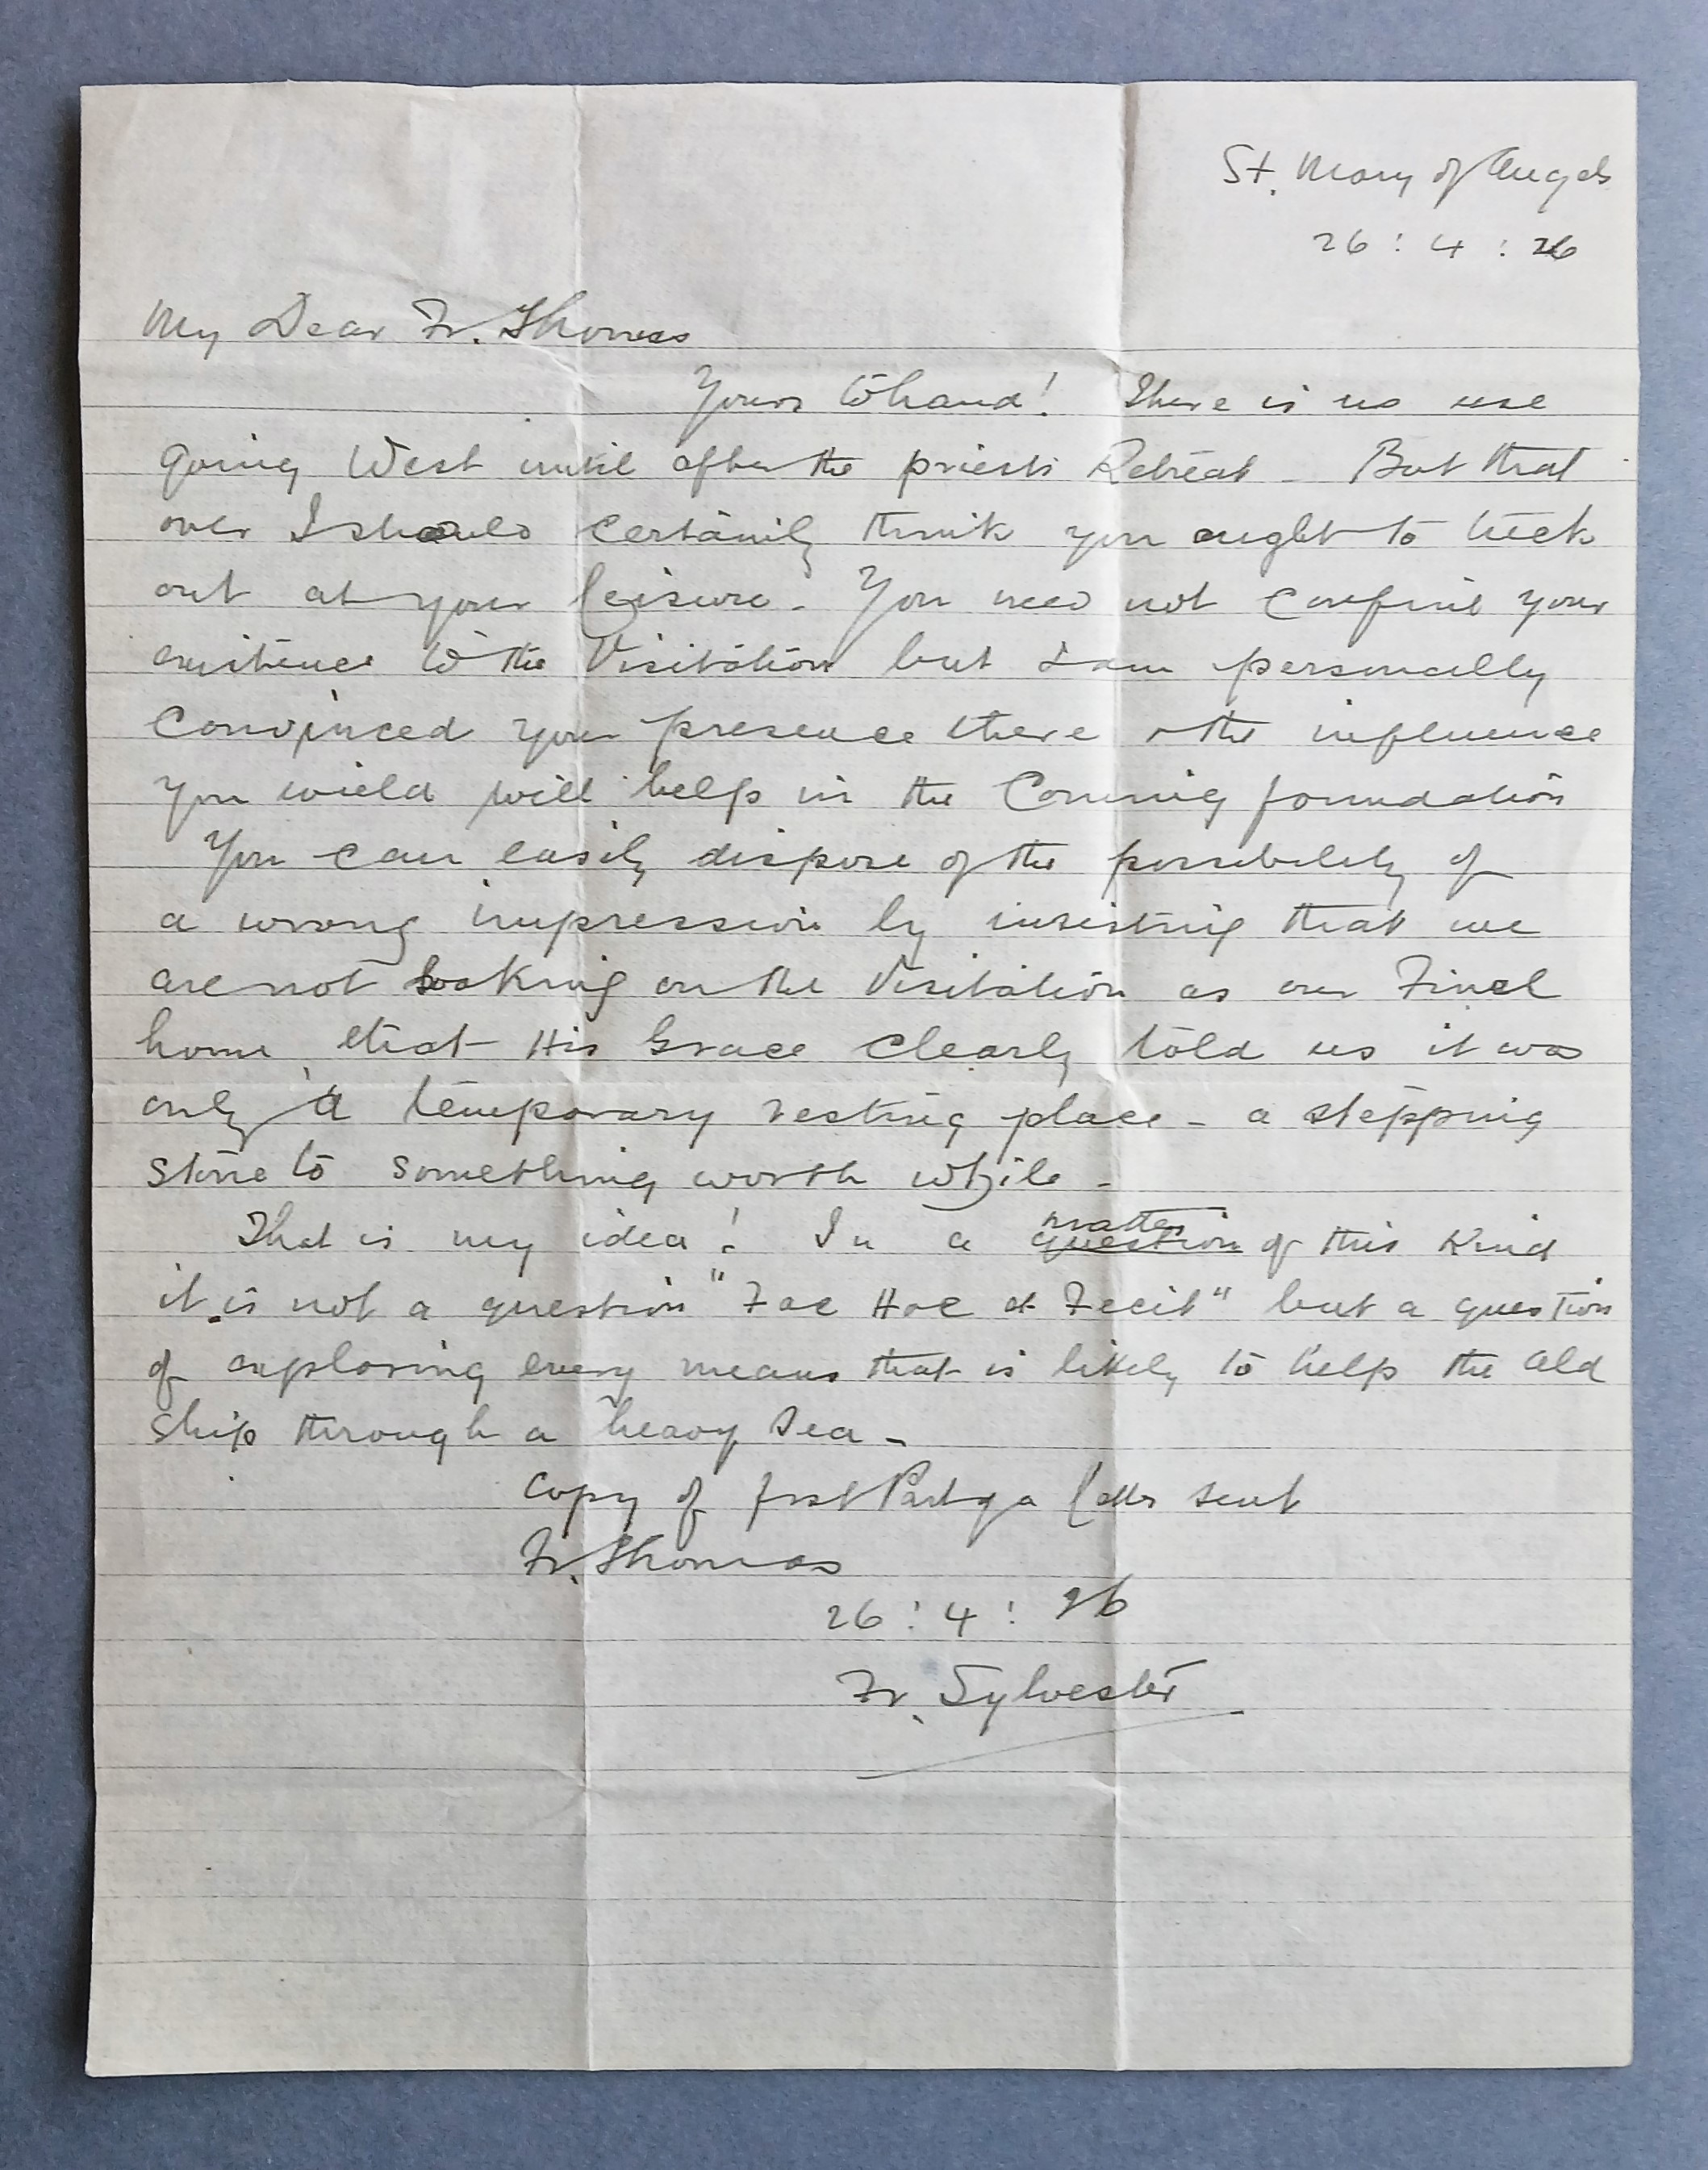 St. Mary of Angels
26 : 4 : 26
My Dear Fr. Thomas
Yours to hand! There is no use
going West until after the priests Retreat - But that
over I should certainly think you ought to trek
out at your leisure. You need not confine your
existence to the Visitation but I am personally
convinced your presence there & the influence
you wield will help in the Coming foundation
You can easily dispose of the possibility of
a wrong impression by insisting that we
are not looking on the Visitation as our Final
home, that His Grace clearly told us it was
only a temporary resting place - a stepping
stone to something worth while -
That is my idea! In a question matter of this Kind
it is not a question "Fac Hoc et Fecit" but a question
of exploring every means that is likely to help the old
ship through a heavy sea -
Copy of first Part of a letter sent
Fr. Thomas
26 : 4 : 26
Fr. Sylvester